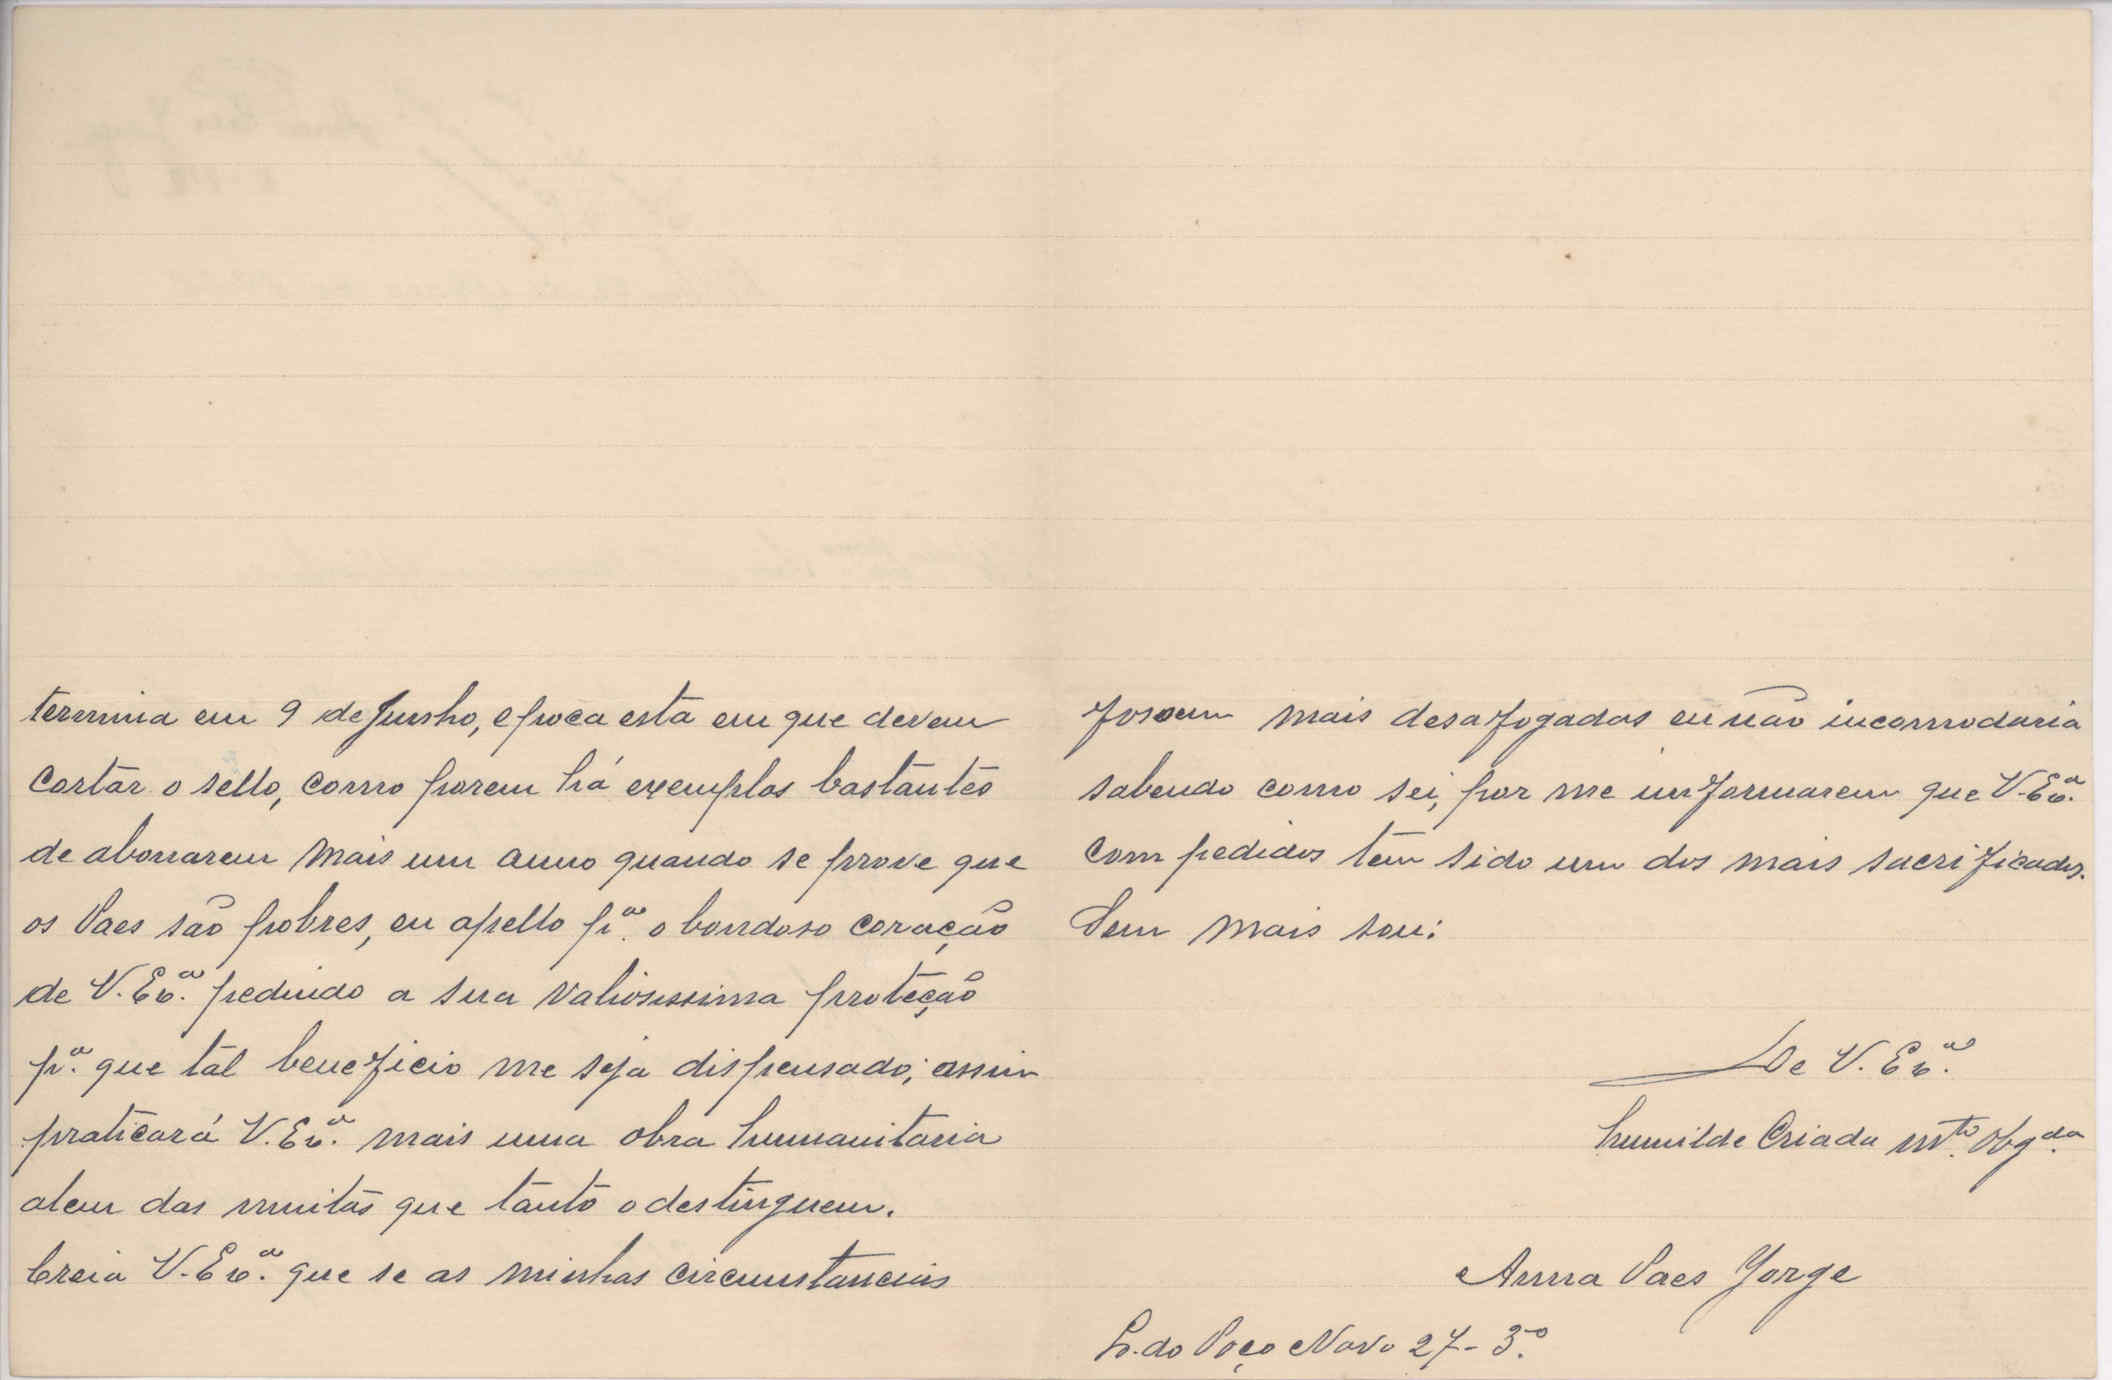 termina em 9 de Junho, epoca esta em que devem
cortar o sello, como porem há exemplos bastantes
de abonarem mais um anno quando se prove que
os Paes são pobres, eu apello pª. o bondoso coração
de V. Exª. pedindo a sua valiosissima proteção
pª. que tal beneficio me seja dispensado; assim
praticará V. Exª. mais uma obra humanitaria
alem das muitas que tanto o destinguem.
Creia V. Exª. que se as minhas circumstancias
fossem mais desafogadas eu não incomodaria
sabendo como sei, por me imformarem que V. Exª.
com pedidos tem sido um dos mais sacrificados.
Sem mais sou:
De V. Exª.
humilde Criada mto. obgda.
Anna Paes Jorge
L. do Poço Novo 27-3º.